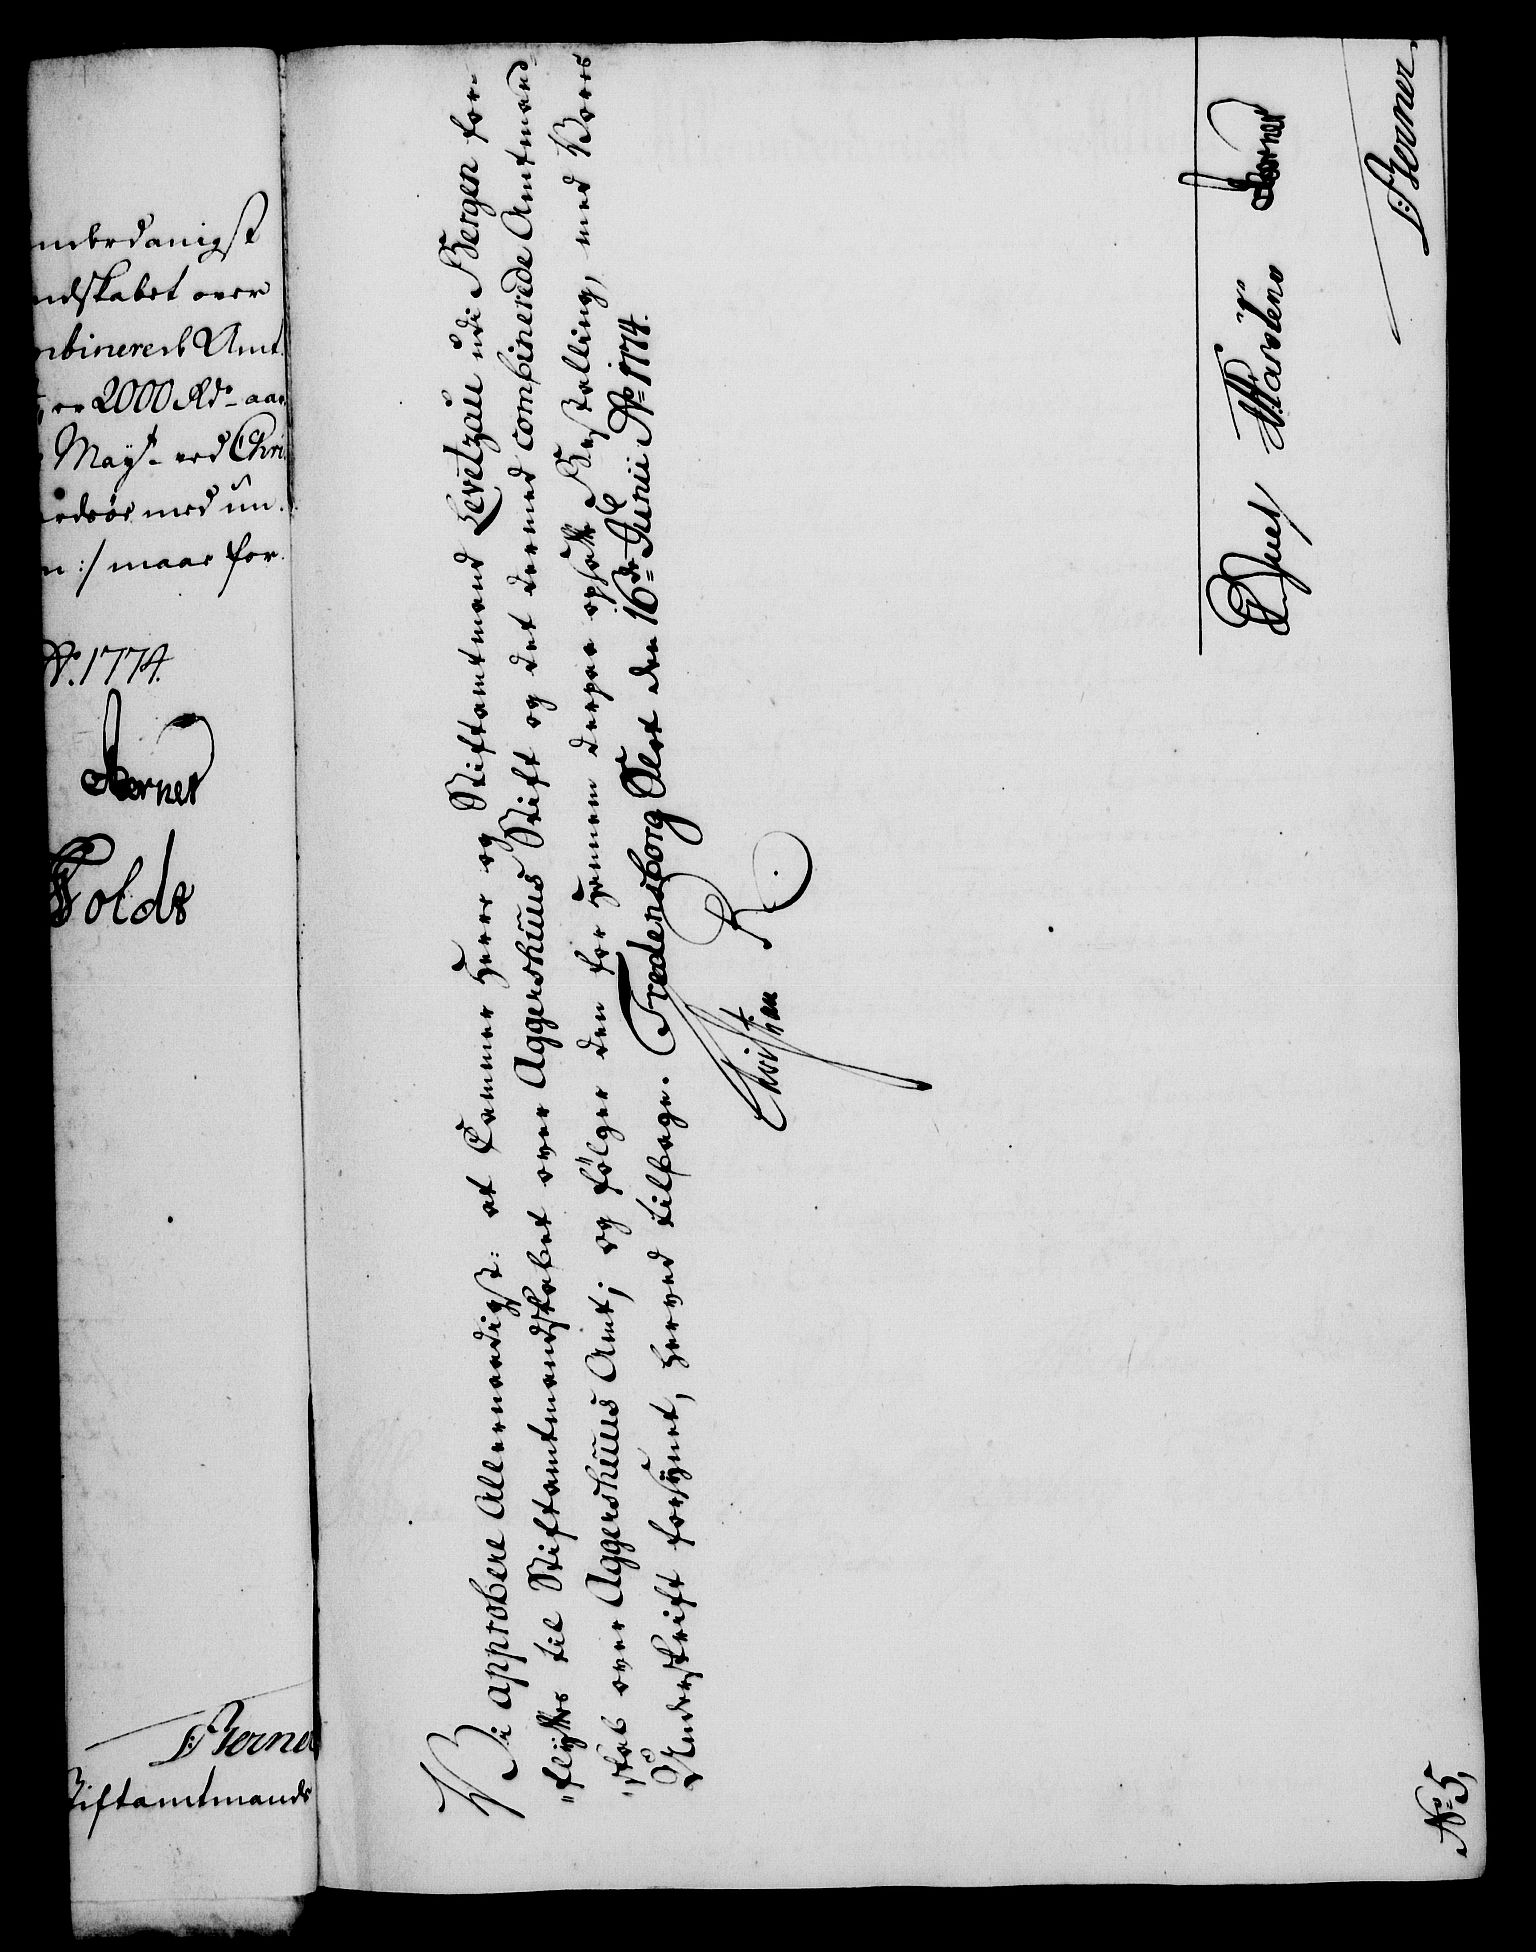 underdanigst
ndskabet over
mbinerede Amt
er 2000 Rd. aar
Mayt. ved Chri
med un
:/ maae for
Ao. 1774.
Berner
Folds
Berner
Stiftamtmands
Vi approbere Allernaadigst: at Cammer Herre og Stiftamtmand Levetzau udi Bergen for-
"flyttes til Stiftamtmandskabet over Aggershuus Stift og det dermed combinerede Amtmand-
"skab over Aggershuus Amt; og følger den for Hannem derpaa opsatte Bestalling, med Vores
Underskrift forsynet, herved tilbage. Fredensborg Slot den 16de Junii Ao 1774.
Christian R.
Berner
Berner.
No 5,